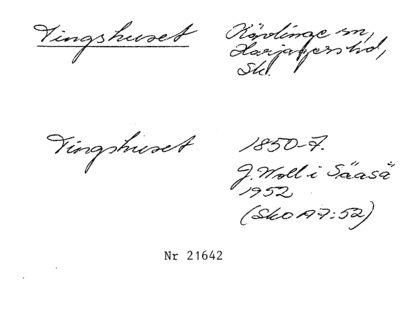 Tingshuset
Kävlinge sn,
Harjagers hd,
Sk.
Tingshuset
1850-t.
J. Woll i Sååså
1952
(Sko A7:52)
Nr 21642